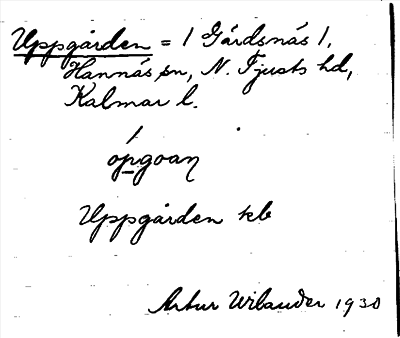 Uppgården = / Gårdsnäs /,
Hannäs sn, N. Tjusts hd,
Kalmar l.
ópgoaη
Uppgården kb
Artur Wilander 1930